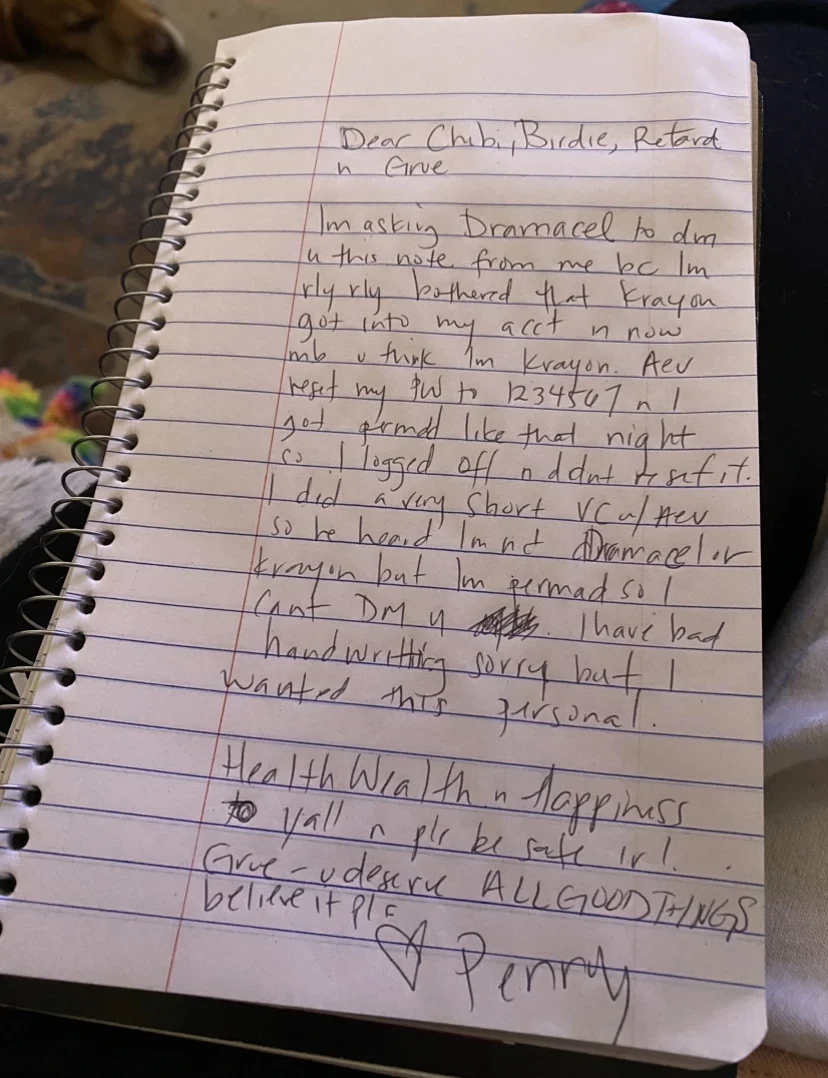 Dear Chibi, Birdie, Retard
n Grue
Im asking Dramacel to dm
u this note from me bc Im
rly rly bothered that Krayon
got into my acct n now
mb u think Im Krayon. Aev
reset my PW to 1234567 n I
got permd like that night
so I logged off n ddnt reset it.
I did a very short VC w/ Aev
so he heard Im nt Dramacel or
Krayon but Im permad so I
Cant DM u . I have bad
handwritting sorry but I
wanted this personal.
Health Wealth n Happiness
to yall n pls be safe irl.
Grue - u deserve ALL GOOD THINGS
believe it pls
♡ Penny